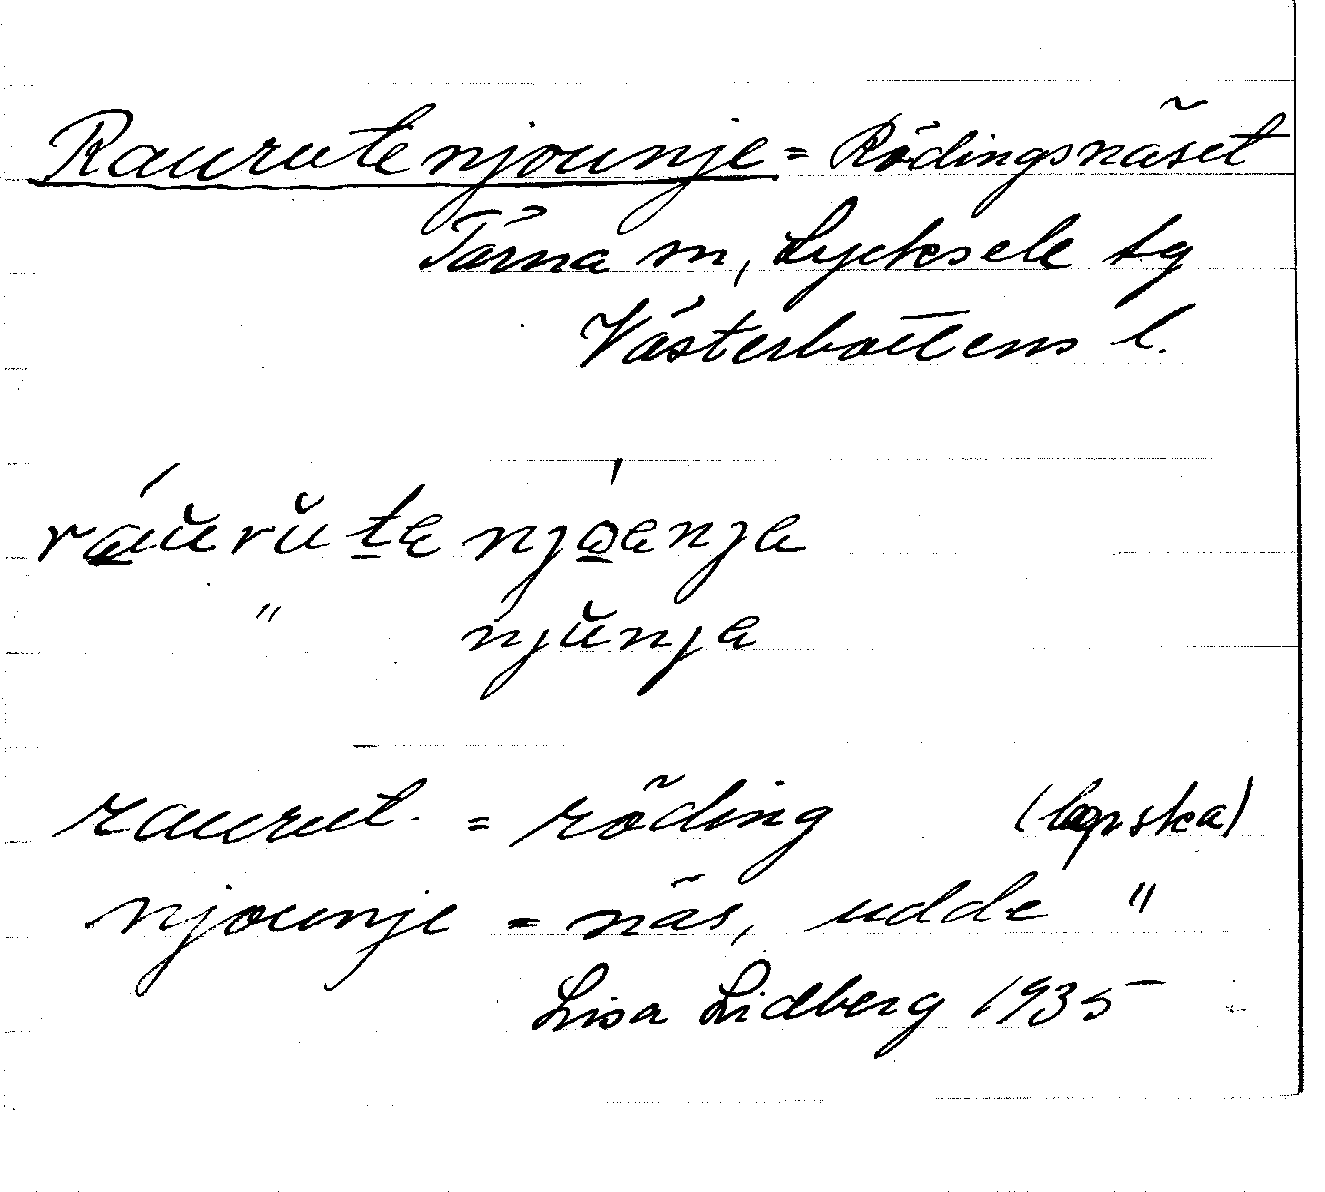 Raurutenjounje = Rödingsnäset
Tärna sn, Lycksele tg
Västerbottens l.
ráu̯rŭtę njǫ́enja
" njŭnja
raurut. = röding (lapska)
njounje = näs, udde "
Lisa Lidberg 1935